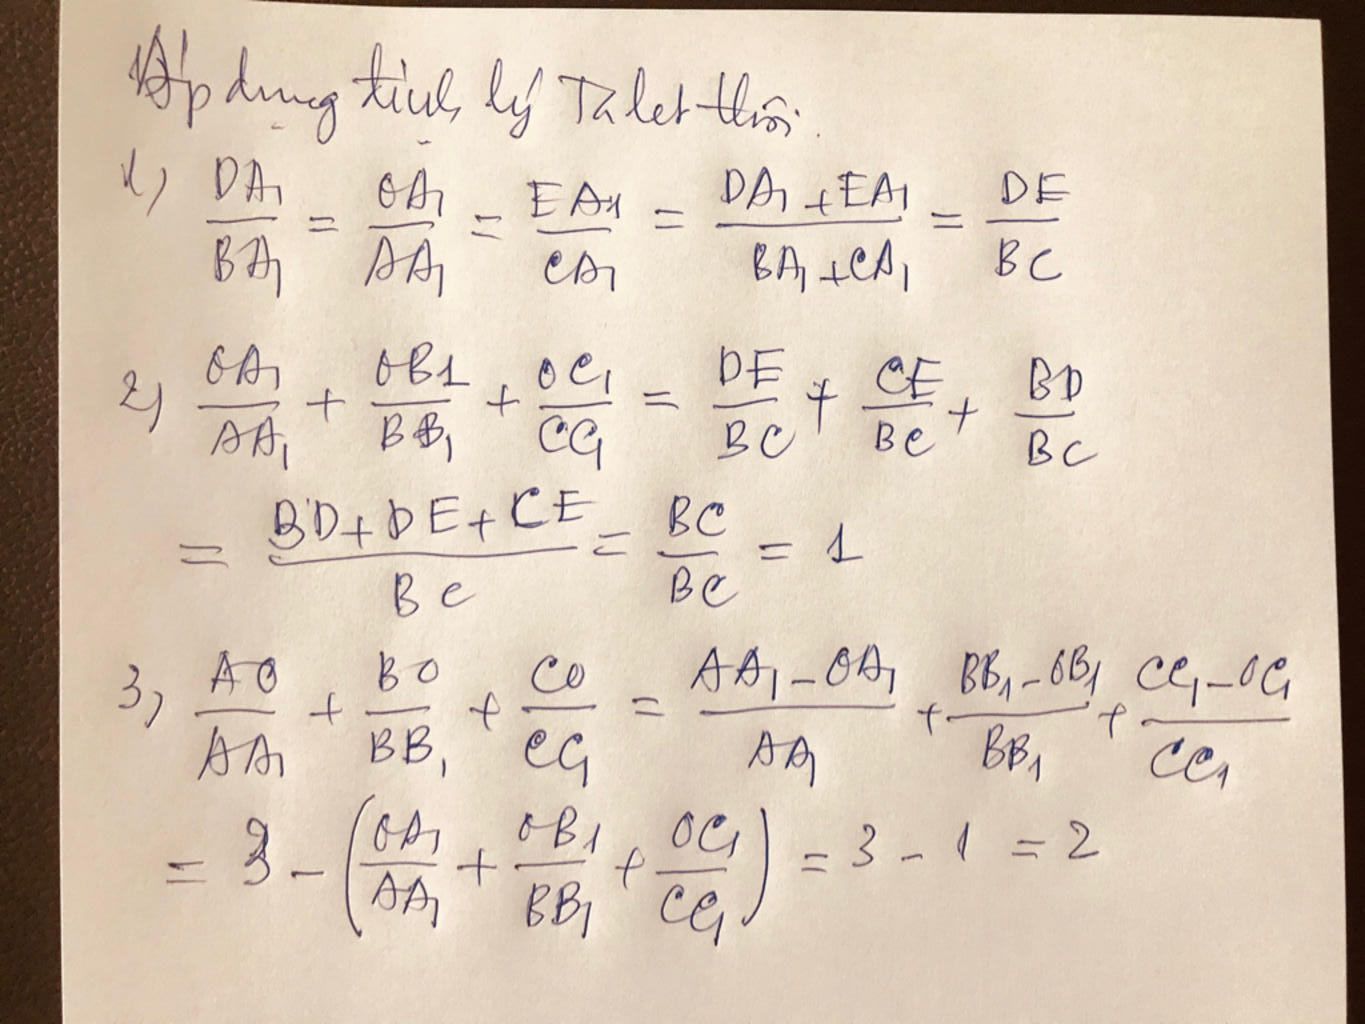 Áp dụng định lý Talet thôi.
1) DA₁/BA₁ = OA₁/AA₁ = EA₁/CA₁ = (DA₁ + EA₁)/(BA₁ + CA₁) = DE/BC
2) OA₁/AA₁ + OB₁/BB₁ + OC₁/CC₁ = DE/BC + CE/BC + BD/BC
= (BD + DE + CE)/BC = BC/BC = 1
3) AO/AA₁ + BO/BB₁ + CO/CC₁ = (AA₁ - OA₁)/AA₁ + (BB₁ - OB₁)/BB₁ + (CC₁ - OC₁)/CC₁
= 3 - (OA₁/AA₁ + OB₁/BB₁ + OC₁/CC₁) = 3 - 1 = 2